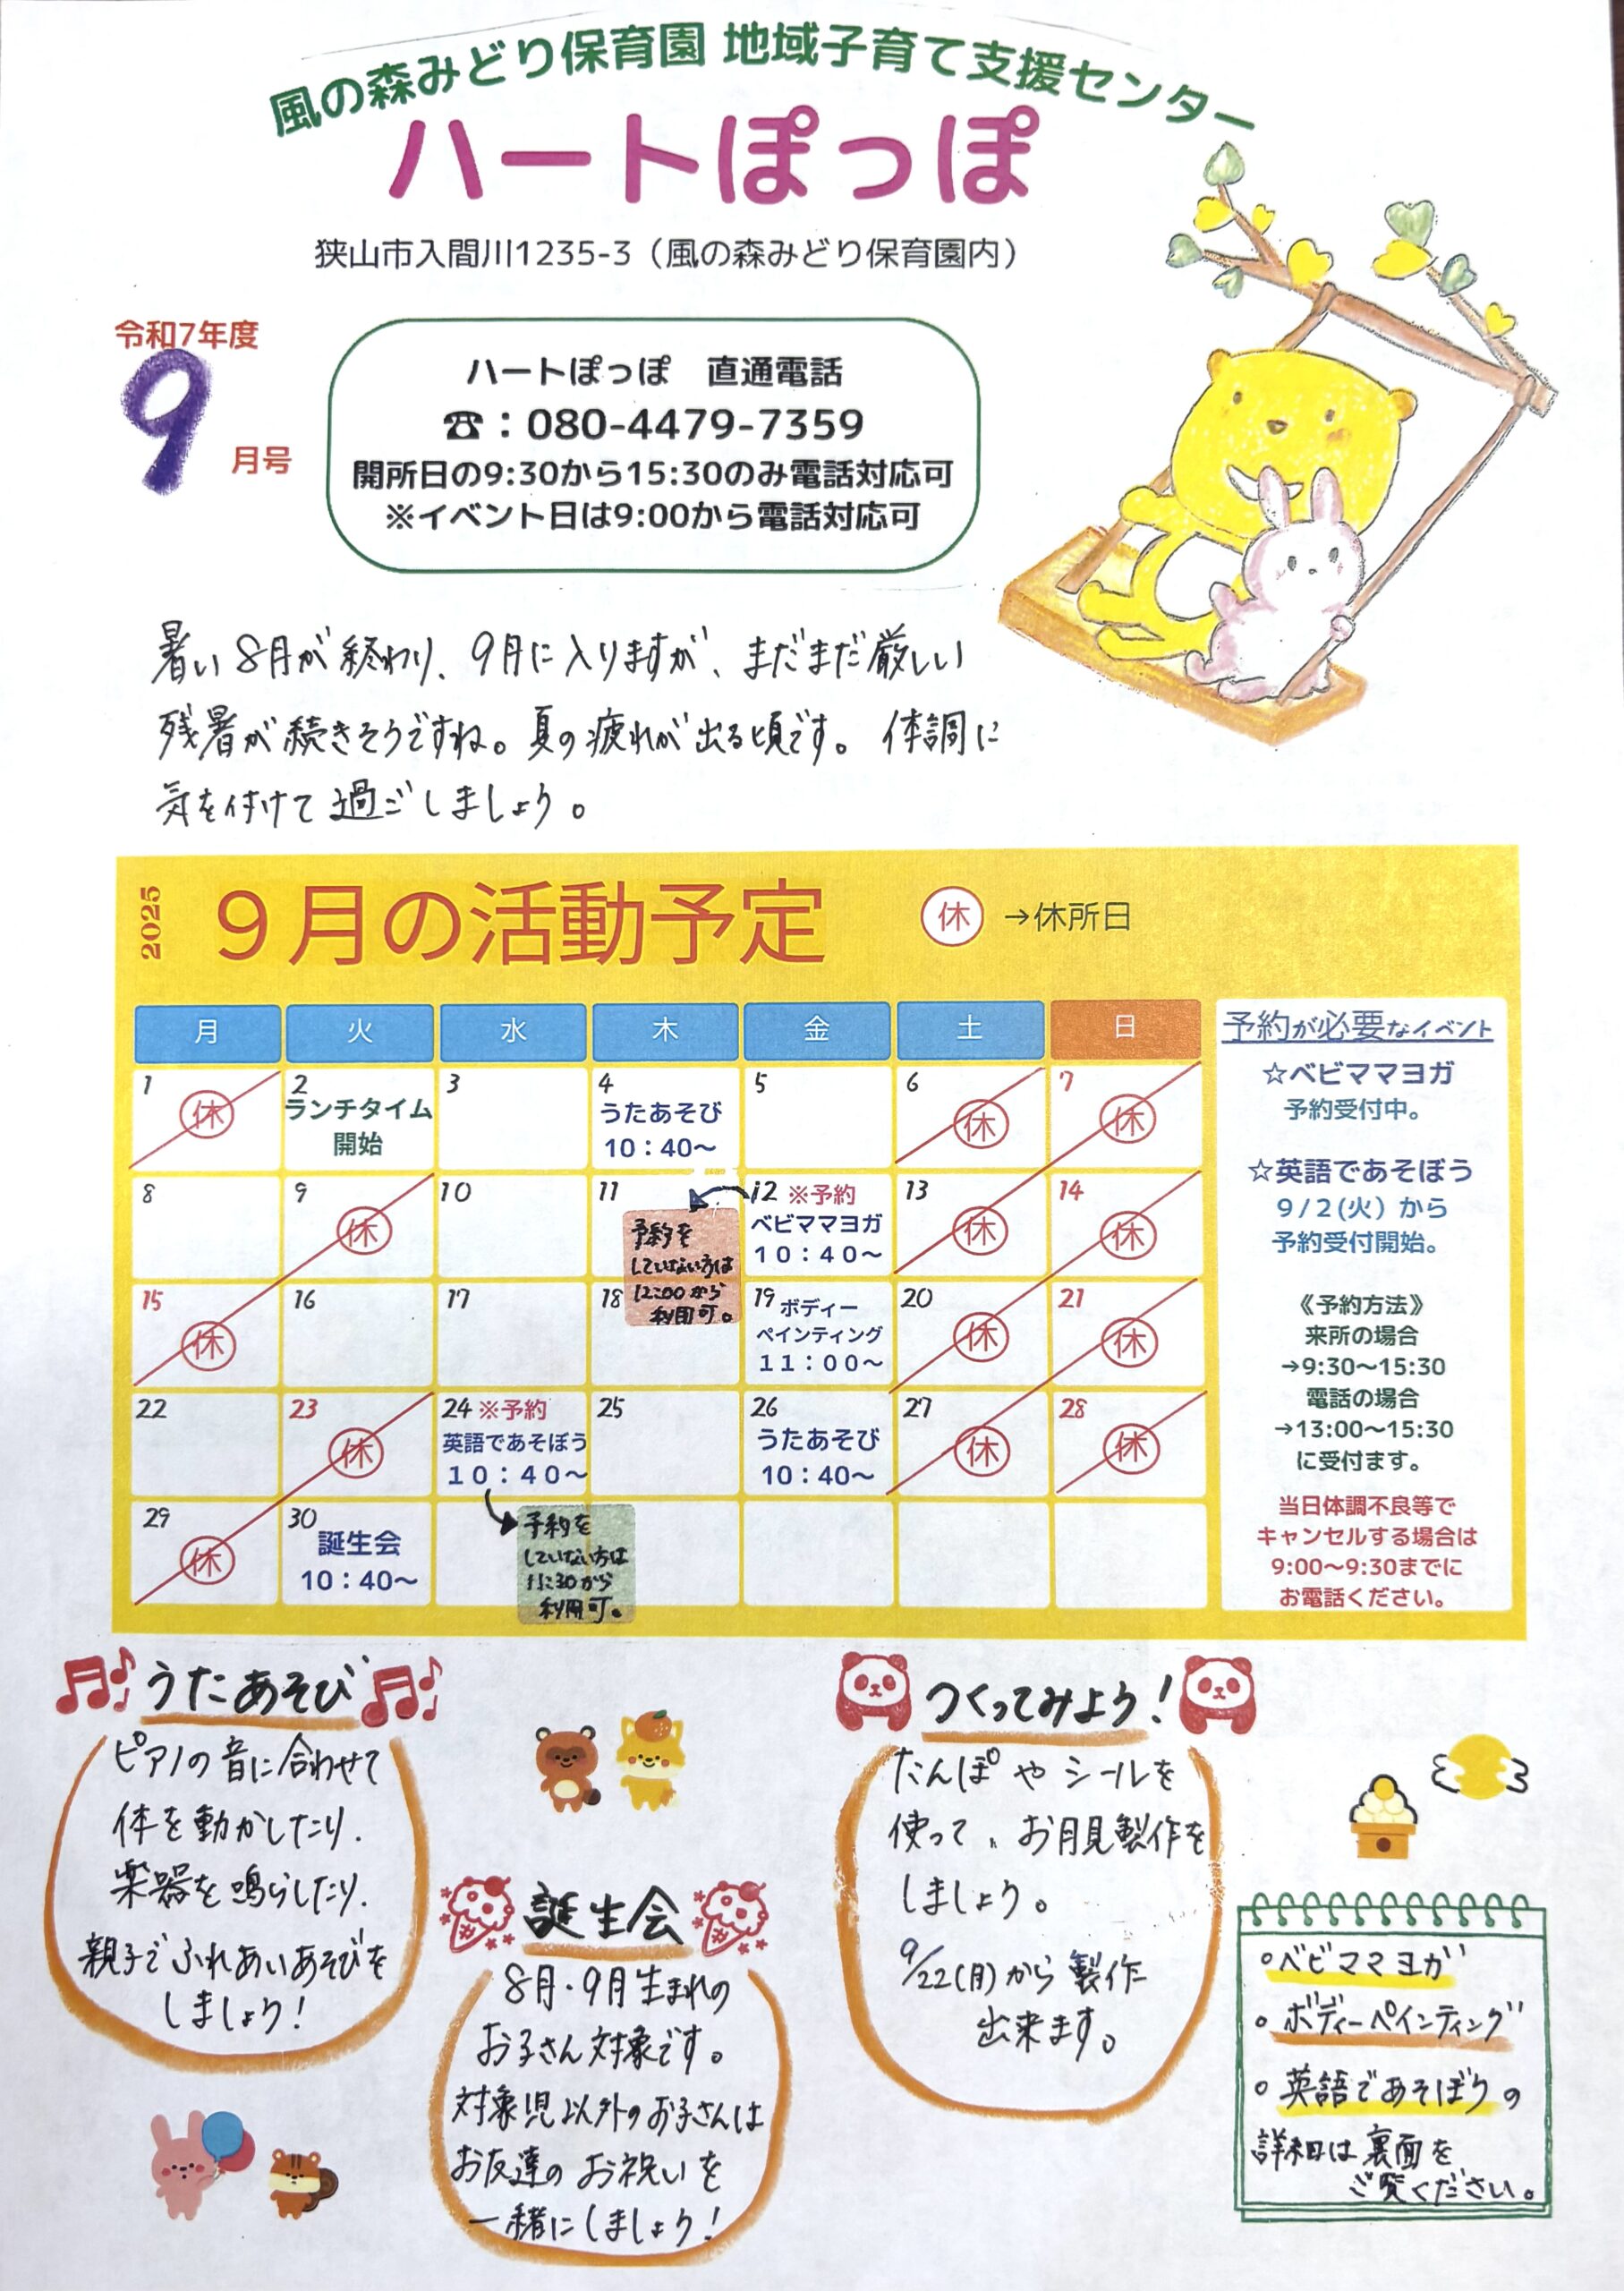 風の森みどり保育園 地域子育て支援センター
ハートぽっぽ
狭山市入間川1235-3（風の森みどり保育園内）
令和7年度
9
月号
ハートぽっぽ 直通電話
☎：080-4479-7359
開所日の9:30から15:30のみ電話対応可
※イベント日は9:00から電話対応可
暑い8月が終わり、9月に入りますが、まだまだ厳しい
残暑が続きそうですね。夏の疲れが出る頃です。体調に
気を付けて過ごしましょう。
2025
9月の活動予定
休 →休所日
月 火 水 木 金 土 日
1 休
2 ランチタイム
開始
3
4
うたあそび
10：40～
5
6 休
7 休
8
9 休
10
11
12 ※予約
ベビママヨガ
10：40～
予約を
していない方は
12:00から
利用可。
13 休
14 休
15 休
16
17
18
19 ボディー
ペインティング
11：00～
20 休
21 休
22
23 休
24 ※予約
英語であそぼう
10：40～
予約を
していない方は
11:30から
利用可。
25
26
うたあそび
10：40～
27 休
28 休
29 休
30
誕生会
10：40～
予約が必要なイベント
☆ベビママヨガ
予約受付中。
☆英語であそぼう
9/2(火）から
予約受付開始。
《予約方法》
来所の場合
→9:30～15:30
電話の場合
→13:00～15:30
に受付ます。
当日体調不良等で
キャンセルする場合は
9:00～9:30までに
お電話ください。
うたあそび
ピアノの音に合わせて
体を動かしたり、
楽器を鳴らしたり、
親子でふれあいあそびを
しましょう！
誕生会
8月・9月生まれの
お子さん対象です。
対象児以外のお子さんは
お友達のお祝いを
一緒にしましょう！
つくってみよう！
たんぽやシールを
使って、お月見製作を
しましょう。
9/22(月)から製作
出来ます。
○ベビママヨガ
○ボディーペインティング
○英語であそぼうの
詳細は裏面を
ご覧ください。